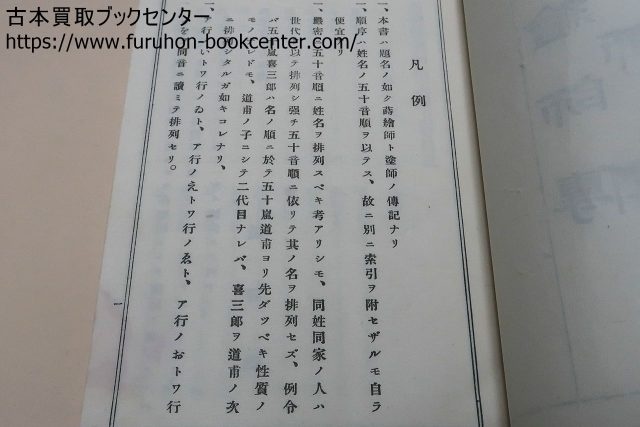 古本買取ブックセンター
https://www.furuhon-bookcenter.com/
凡例
一、本書ハ題名ノ如ク蒔繪師ト塗師ノ傳記ナリ
一、順序ハ姓名ノ五十音順ヲ以テス、故ニ別ニ索引ヲ附セザルモ自ラ
便宜ナリ
一、嚴密ニ五十音順ニ姓名ヲ排列スベキ考アリシモ、同姓同家ノ人ハ
世代ヲ以テ排列シ强チ五十音順ニ依リテ其ノ名ヲ排列セズ、例令
バ五十嵐喜三郎ハ名ノ順ニ於テ五十嵐道甫ヨリ先ダツベキ性質ノ
モノナレドモ、道甫ノ子ニシテ二代目ナレバ、喜三郎ヲ道甫ノ次
ニ排列シタルガ如キコレナリ、
一、ア行ノいトワ行ノゐト、ア行ノえトワ行ノゑト、ア行ノおトワ行
を同音ニ讀ミテ排列セリ。
一